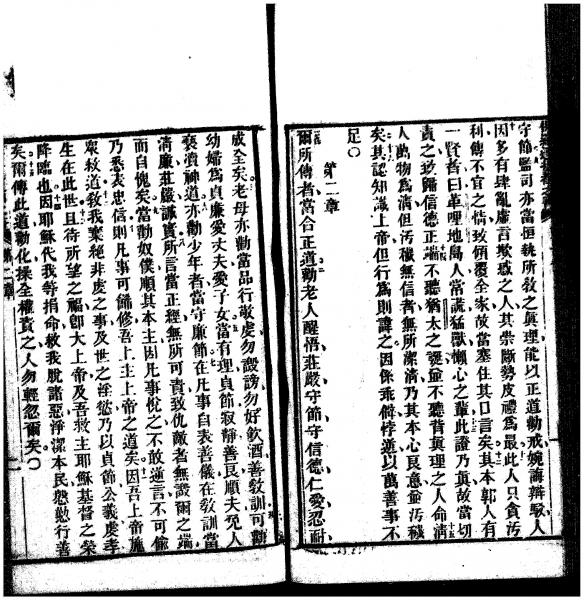 守節監司亦當恒執所敎之眞理能以正道勸戒婉誨辨駁人
因多有肆亂虛言欺惑之人其崇斷勢皮禮爲最此人只貪汚
利傳不宜之情致傾覆全家故當塞住其口言矣其本郭人有
一賢者曰革哩地島人常謊猛獸懶心之輩此證乃眞故當切
責之致歸信德正端不聽猶太之誕並不聽背眞理之人命淸
人萬物爲淸但汚穢無信者無所潔淸乃其本心良意並汚穢
矣其認知識上帝但行爲則諱之因係乖僻悖逆以萬善事不
足
第二章
爾所傳者當合正道勸老人醒悟莊嚴守節守信德仁愛忍耐
成全矣老母亦勸當品行敬虔勿譭謗勿好飮酒善敎訓可勸
幼婦爲貞廉愛丈夫愛子女當有理貞節寂靜善良順夫免人
褻瀆神道亦勸少年者當守廉節在凡事自表善儀在敎訓當
淸廉莊嚴誠實所言當正經無所可責致仇敵者無譏爾之端
而自愧矣當勸奴僕順其本主因凡事悅之不敢逆言不可偷
乃悉表忠信則凡事可飾修吾上主上帝之道矣因吾上帝施
衆救道敎我棄絕非虔之事及世之淫慾乃以貞節公義虔孝
生在此世且待所望之福卽大上帝及吾救主耶穌基督之榮
降臨也因耶穌代我等捐命救我脫諸惡淨潔本民慇懃行善
矣爾傳此道勸化操全權責之人勿輕忽爾矣
第二章